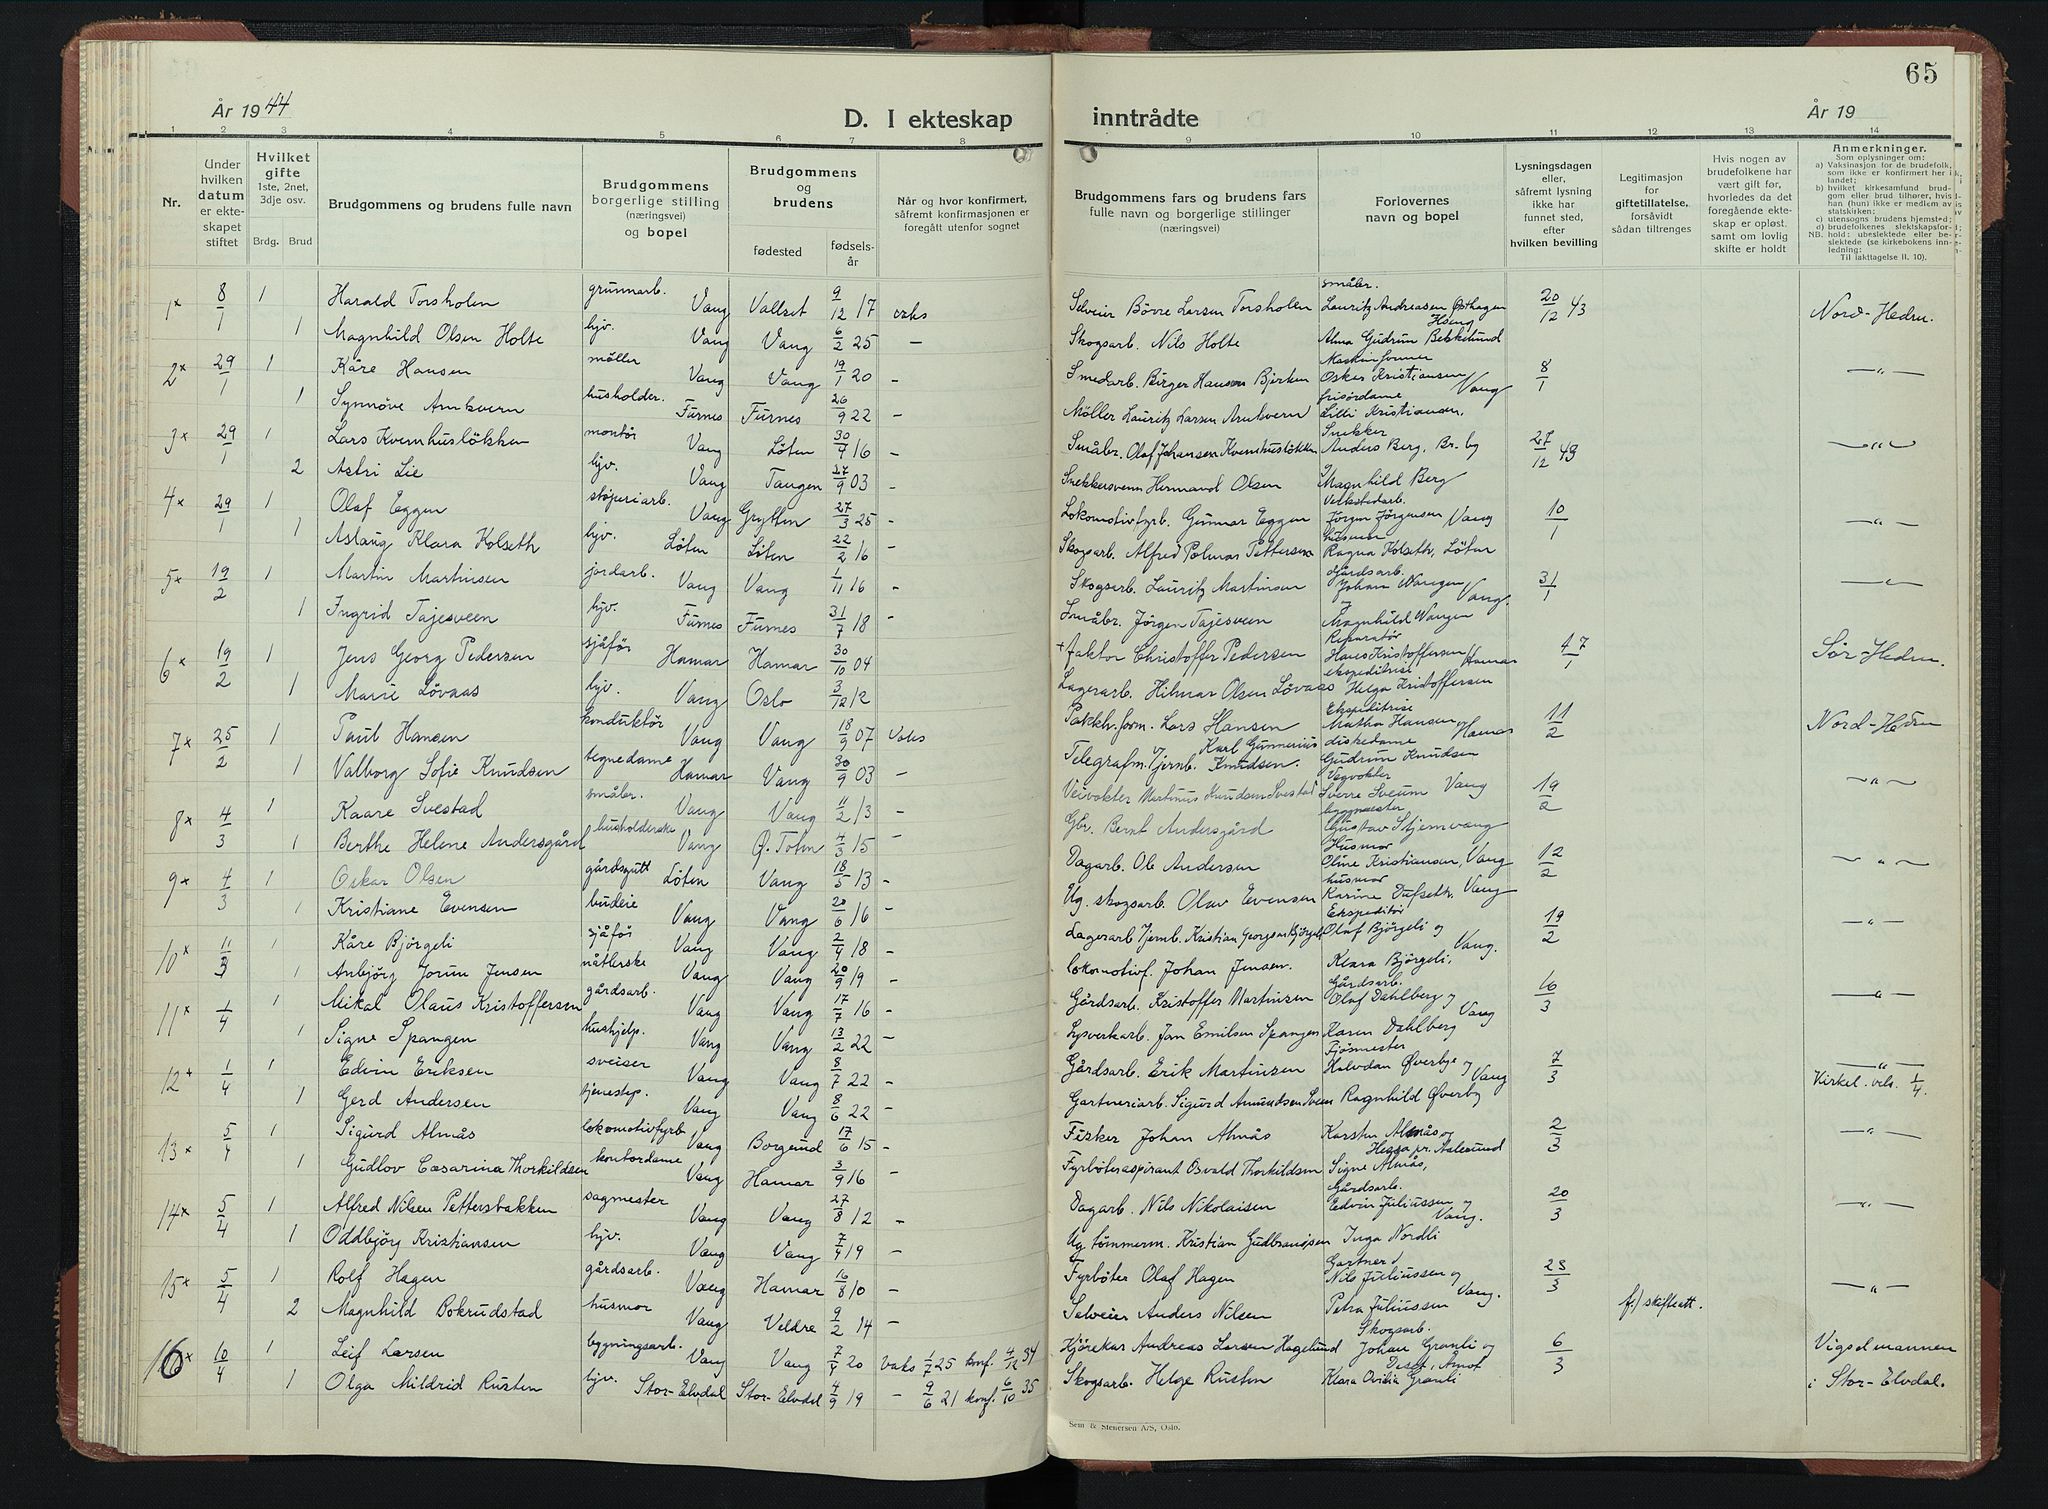 65
År 1944
D. I ekteskap
inntrådte
År 19
1 2 3 4 5 6 7 8 9 10 11 12 13 14
Nr.
Under hvilken datum er ekteskapet stiftet
Hvilket gifte 1ste, 2net, 3dje osv.
Brdg. Brud
Brudgommens og brudens fulle navn
Brudgommens borgerlige stilling (næringsvei) og bopel
Brudgommens og brudens
fødested
fødselsår
Når og hvor konfirmert, såfremt konfirmasjonen er foregått utenfor sognet
Brudgommens fars og brudens fars fulle navn og borgerlige stillinger (næringsvei)
Forlovernes navn og bopel
Lysningsdagen eller, såfremt lysning ikke har funnet sted, efter hvilken bevilling
Legitimasjon for giftetillatelse, forsåvidt sådan tiltrenges
Hvis nogen av brudefolkene har vært gift før, hvorledes da det foregående ekteskap er opløst, samt om lovlig skifte er holdt
Anmerkninger.
Som oplysninger om:
a) Vaksinasjon for de brudefolk, som ikke er konfirmert her i landet;
b) hvilket kirkesamfund brudgom eller brud tilhører, hvis han (hun) ikke er medlem av statskirken;
c) utensogns brudens hjemsted;
d) brudefolkenes slektskapsforhold: ubeslektede eller beslektede (se kirkebokens innledning:
NB.
Til iakttagelse II. 10).
1× 8/1 1 Harald Torsholen grunnarb. Vang Vallset 9/12 17 vaks Selveier Börre Larsen Torsholen småbr. Lauritz Andreasen Østhagen 20/12 43 Nord-Hedm.
1 Magnhild Olsen Holte hjv. Vang Vang 6/2 25 — Skogsarb. Nils Holte Alma Gudrun
2× 29/1 1 Kåre Hansen møller Vang Vang 19/1 20 — Smedarb. Birger Hansen Bjerken Oskar Kristiansen Vang 8/1 —"—
1 Synnöve Arnkvern husholder. Furnes Furnes 26/9 22 — Möller Lauritz Larsen Arnkvern frisördame Lilli Kristiansen.
3× 29/1 1 Lars Kvernhuslökken montör Vang Löten 30/4 16 — Småbr. Olaf Johansen Kvernhuslökken Snekker Anders Berg, Br. by 27/12 43 —"—
2 Astri Lie hjv. Vang Tangen 27/9 03 — Snekkersvenn Hermand Olsen Magnhild Berg
4× 29/1 1 Olaf Eggen støperiarb. Vang Grytten 27/3 25 — Lokomotivfyrb. Gunnar Eggen Jörgen Jörgensen Vang 10/1 —"—
1 Aslaug Klara Kolseth hjv. Löten Löten 22/2 16 — Skogsarb. Alfred Polmar Pettersen husmor Ragna Kolseth, Löten
5× 19/2 1 Martin Martinsen jordarb. Vang Vang 1/11 16 — Skogsarb. Lauritz Martinsen Gårdsarb. Johan Wangen Vang. 31/1 —"—
1 Ingrid Tajesveen hjv. Furnes Furnes 31/7 18 — Småbr. Jörgen Tajesveen Magnhild Wangen
6× 19/2 1 Jens Georg Pedersen sjåför Hamar Hamar 30/10 04 + faktor Christoffer Pedersen Reparatør Hans Kristoffersen Hamar Sør-Hedm.
1 Marie Lövaas hjv. Vang Oslo 3/12 12 Lagerarb. Hilmar Olsen Lövaas ekspeditrise Helga Kristoffersen
7× 25/2 1 Paul Hansen konduktör Vang Vang 18/9 07 vaks Pakkh.form. Lars Hansen Ekspeditrise Martha Hansen Hamar 11/2 Nord-Hedm
1 Valborg Sofie Knudsen tegnedame Hamar Vang 30/9 03 — Telegrafm. Jernb. Karl Gunnerius Knudsen. diskedame Gudrun Knudsen
8× 4/3 1 Kaare Svestad småbr. Vang Vang 11/2 13 — Veivokter Martinus Knudsen Svestad Vegvokter Sverre Sveum Vang 19/2 —"—
1 Berthe Helene Andersgård husholderske Vang Ø. Toten 4/3 15 — Gbr. Bernt Andersgård byggmester Gustav Stjernvang
9× 4/3 1 Oskar Olsen gårdsgutt Löten Vang 18/5 13 — Dagarb. Ole Andersen Husmor Oline Kristiansen, Vang 12/2 —"—
1 Kristiane Evensen budeie Vang Vang 20/6 16 — Ug. skogsarb. Olav Evensen husmor Karine Dufseth, Vang
10× 11/3 1 Kåre Björgeli sjåför Vang Vang 2/4 18 — Lagerarb Jernb. Kristian Georgsen Björgeli Ekspeditör Olaf Björgeli og 19/2 —"—
1 Anbjörg Jorun Jensen nåtlerske Vang Vang 20/9 19 — lokomotivf. Johan Jensen. Klara Björgeli, Vang.
11× 1/4 1 Mikal Olaus Kristoffersen gårdsarb. Vang Vang 17/7 16 — Gårdsarb. Kristoffer Martinsen Gårdsarb. Olaf Dahlberg og 16/3 —"—
1 Signe Spangen hushjelp. Vang Vang 13/2 22 — Lysverkarb. Jon Emilsen Spangen Karen Dahlberg Vang
12+ 1/4 1 Edvin Eriksen sveiser Vang Vang 8/7 22 — Gårdsarb. Erik Martinsen Fjösmester Halvdan Øverbye og Vang 7/3 —"— Kirkel. vels. 1/4.
1 Gerd Andersen tjenestep. Vang Vang 8/6 22 — Gartneriarb. Sigurd Amundsen Sveen Ragnhild Øverby
13× 5/4 1 Sigurd Almås lokomotivfyrb Vang Borgund 17/6 15 — Fisker Johan Almås Karsten Almås og 2/3 —"—
1 Gudlov Cæsarina Thorkildsen kontordame Vang Hamar 3/9 16 — Fyrböteraspirant Osvald Thorkildsen Signe Almås, Hessa pr. Aalesund
14× 5/4 1 Alfred Nilsen Pettersbakken sagmester Vang Vang 27/8 12 — Dagarb. Nils Nikolaisen Gårdsarb. Edvin Juliussen og Vang. 20/3 —"—
1 Oddbjörg Kristiansen hjv. Vang Vang 7/4 19 — Ug tömmerm. Kristian Gudbrandsen Inga Nordli
15× 5/4 1 Rolf Hagen gårdsarb. Vang Hamar 16/8 10 — Fyrböter Olaf Hagen Gartner Nils Juliussen og 23/3 —"—
2 Magnhild Bokrudstad husmor Vang Veldre 9/2 14 — Selveier Anders Nilsen Petra Juliussen Vang. f./ skifteatt.
16× 10/4 1 Leif Larsen bygningsarb. Vang Vang 7/4 20 vaks 1/7 25 konf. 4/12 34 Kjörekar Andreas Larsen Hagelund Skogsarb. Johan Granli og 6/3 Vigselmannen
1 Olga Mildrid Rusten hjv. Stor-Elvdal Stor-Elvdal 4/9 19 — 9/6 21 konf. 6/10 35 Skogsarb. Helge Rusten Klara Ovilia Granli Deset, Åmot i Stor-Elvdal.
Sem & Stenersen A/S, Oslo.